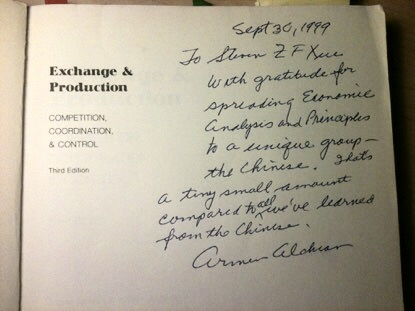 Exchange &
Production
COMPETITION,
COORDINATION,
& CONTROL
Third Edition
Sept 30, 1999
To Steven Z F Xue
With gratitude for
spreading Economic
Analysis and Principles
to a unique group-
the Chinese. Thats
a tiny small amount
compared to all we've learned
from the Chinese.
Armen Alchian